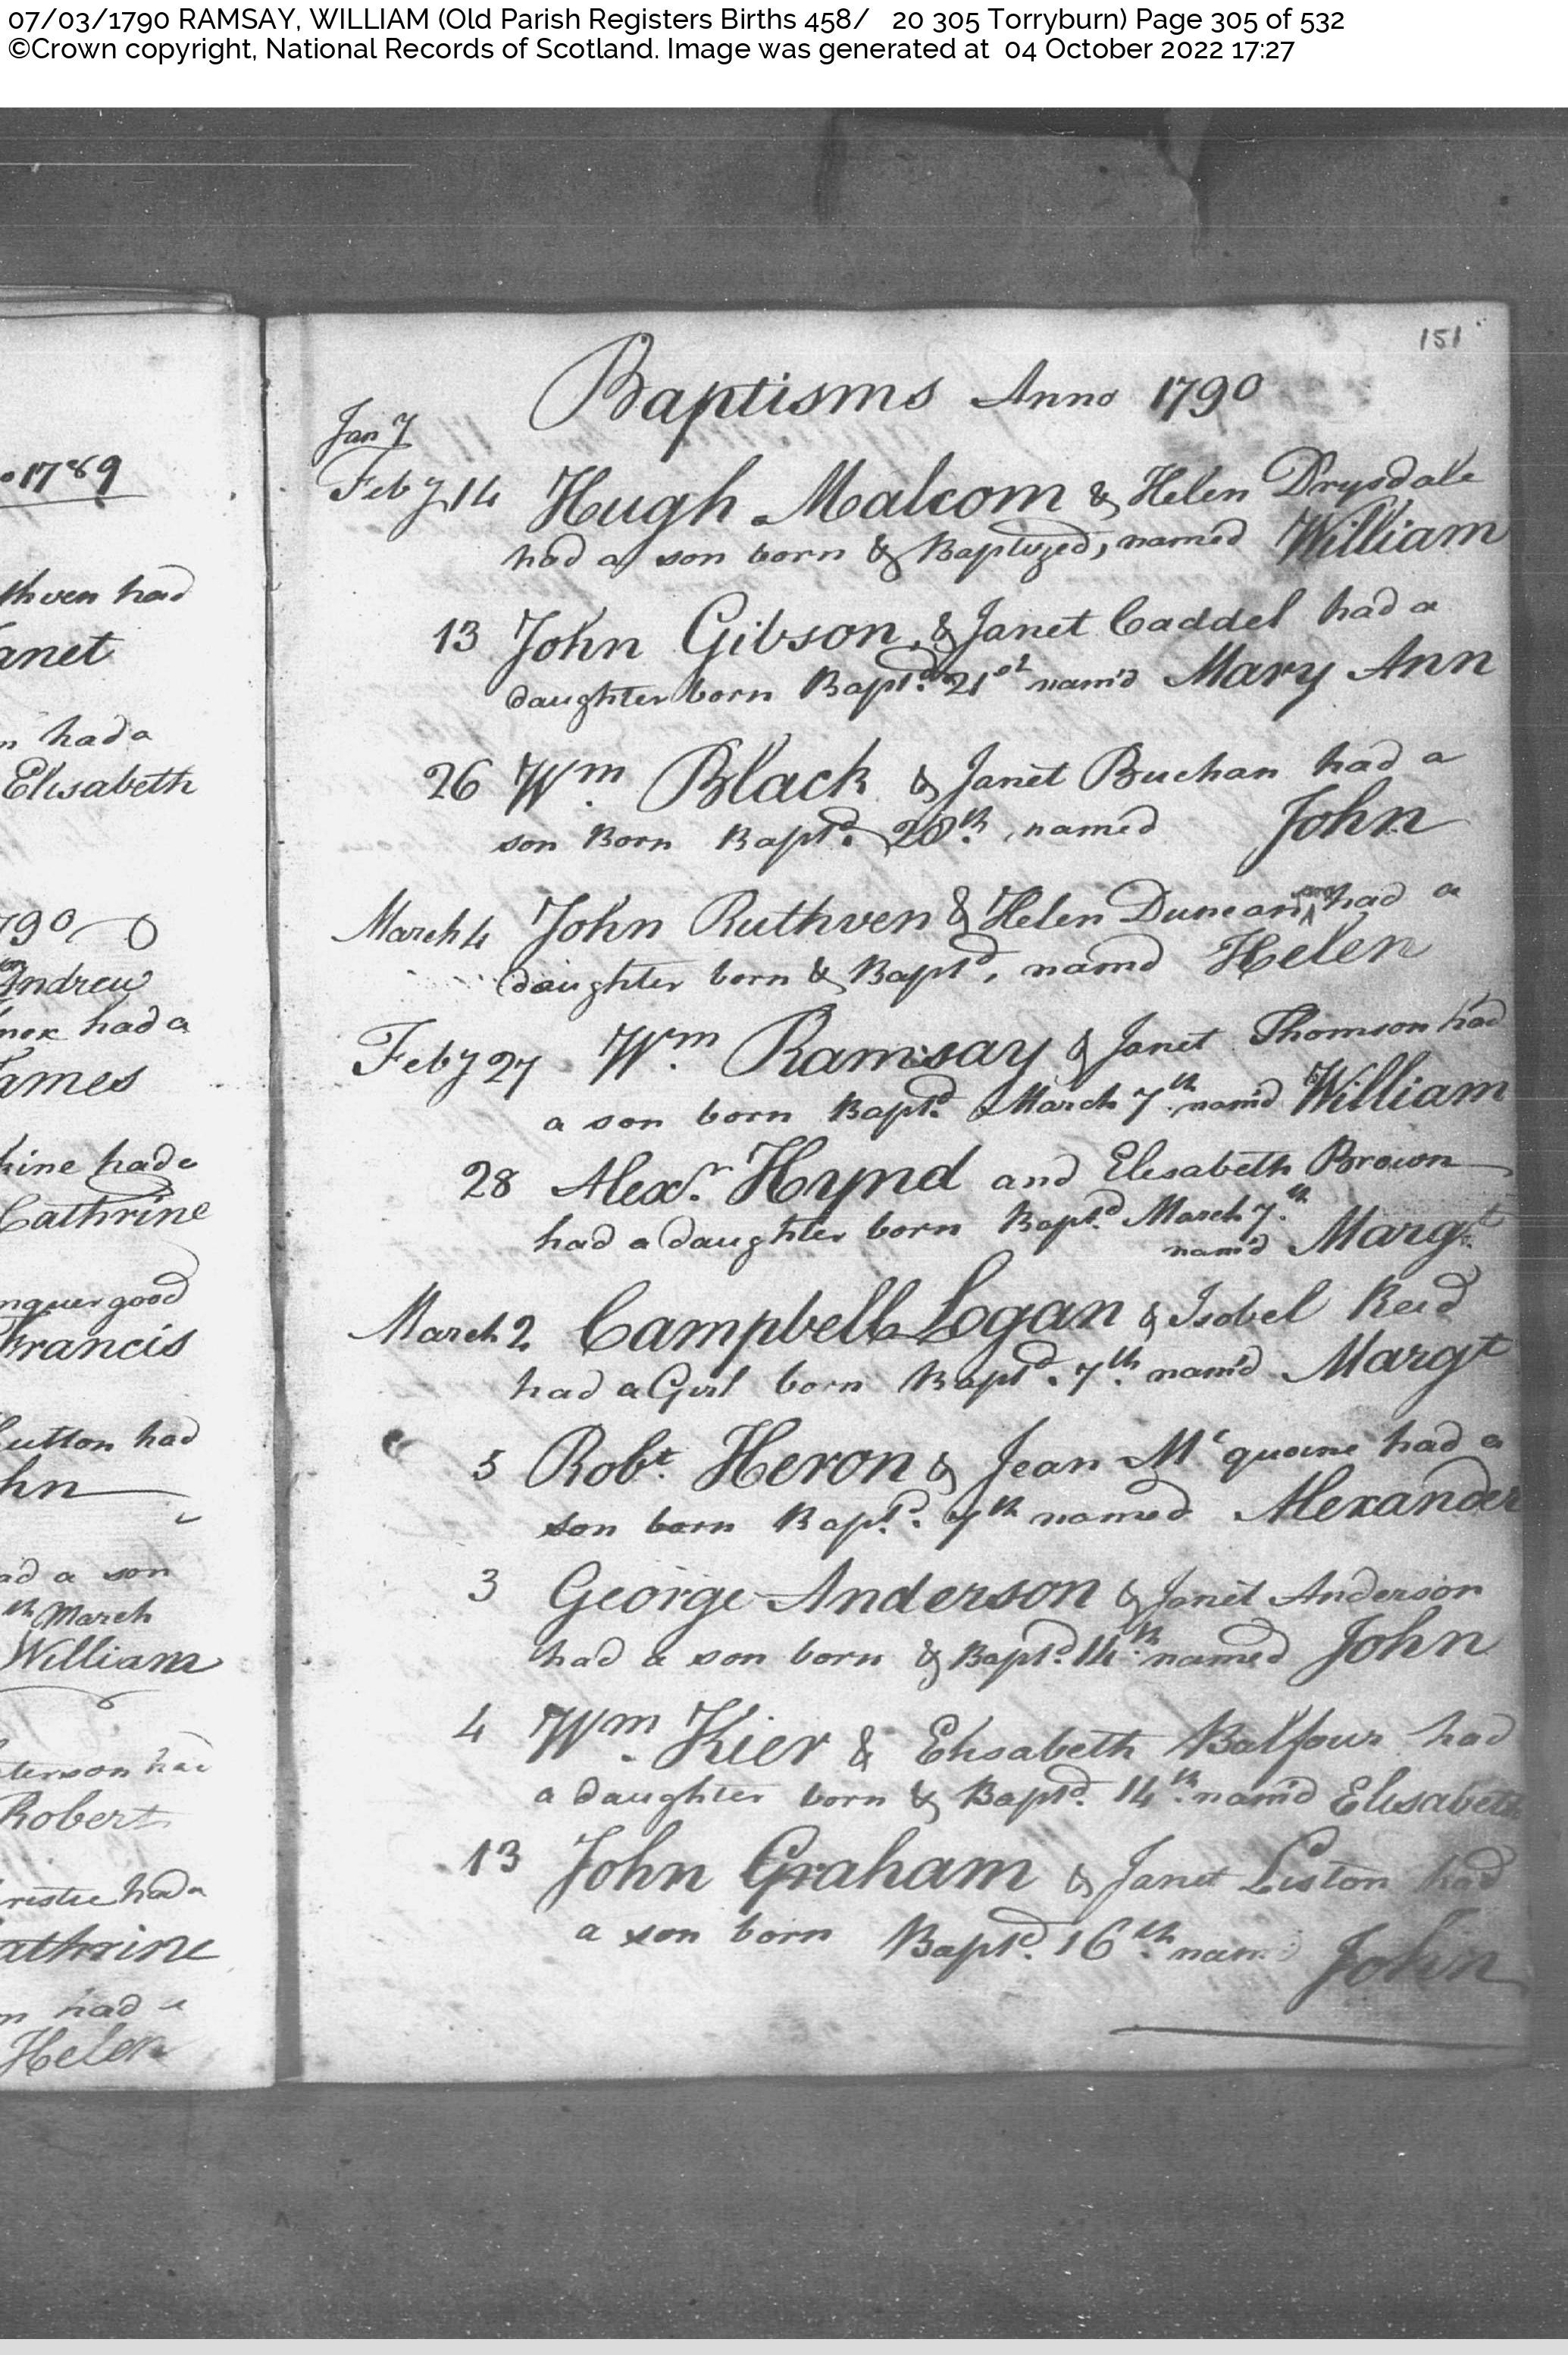 07/03/1790 RAMSAY, WILLIAM (Old Parish Registers Births 458/ 20 305 Torryburn) Page 305 of 532
©Crown copyright, National Records of Scotland. Image was generated at 04 October 2022 17:27
1789
thven had
anet
had a
Elisabeth
790
Andrew
nox had a
James
kine had a
Cathrine
nquergood
Francis
Hutton had
hn
ad a son
th March
William
terson had
Robert
ristie had a
athrine
m had a
Helen
151
Baptisms Anno 1790
Jan 7
Feby 14 Hugh Malcom & Helen Drysdale
had a son born & Baptized, named William
13 John Gibson & Janet Caddel had a
daughter born Bapt.d 21st nam'd Mary Ann
26 Wm. Black & Janet Buchan had a
son Born Bapt.d 28th. named John
March 4 John Ruthven & Helen Duncan had a
daughter born & Baptd. namd Helen
Feby 27 Wm. Ramsay & Janet Thomson had
a son born Baptd. March 7th nam'd William
28 Alexr. Hynd and Elisabeth Brown
had a daughter born Bapt.d March 7.th
nam'd Margt
March 2 Campbell Logan & Isobel Reid
had a Girl born Baptd. 7th. nam'd Margt
5 Robt. Heron & Jean Mcqueine had a
son born Bapt.d. 7th named Alexander
3 George Anderson & Janet Anderson
had a son born & Baptd. 14th named John
4 Wm. Kier & Elisabeth Balfour had
a daughter born & Baptd. 14th. nam'd Elisabeth
13 John Graham & Janet Liston had
a son born Baptd. 16th. nam'd John